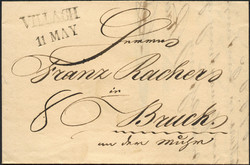 VILLACH
11 MAY
Franz Rachers
in
8 Bruck
an der Muhr